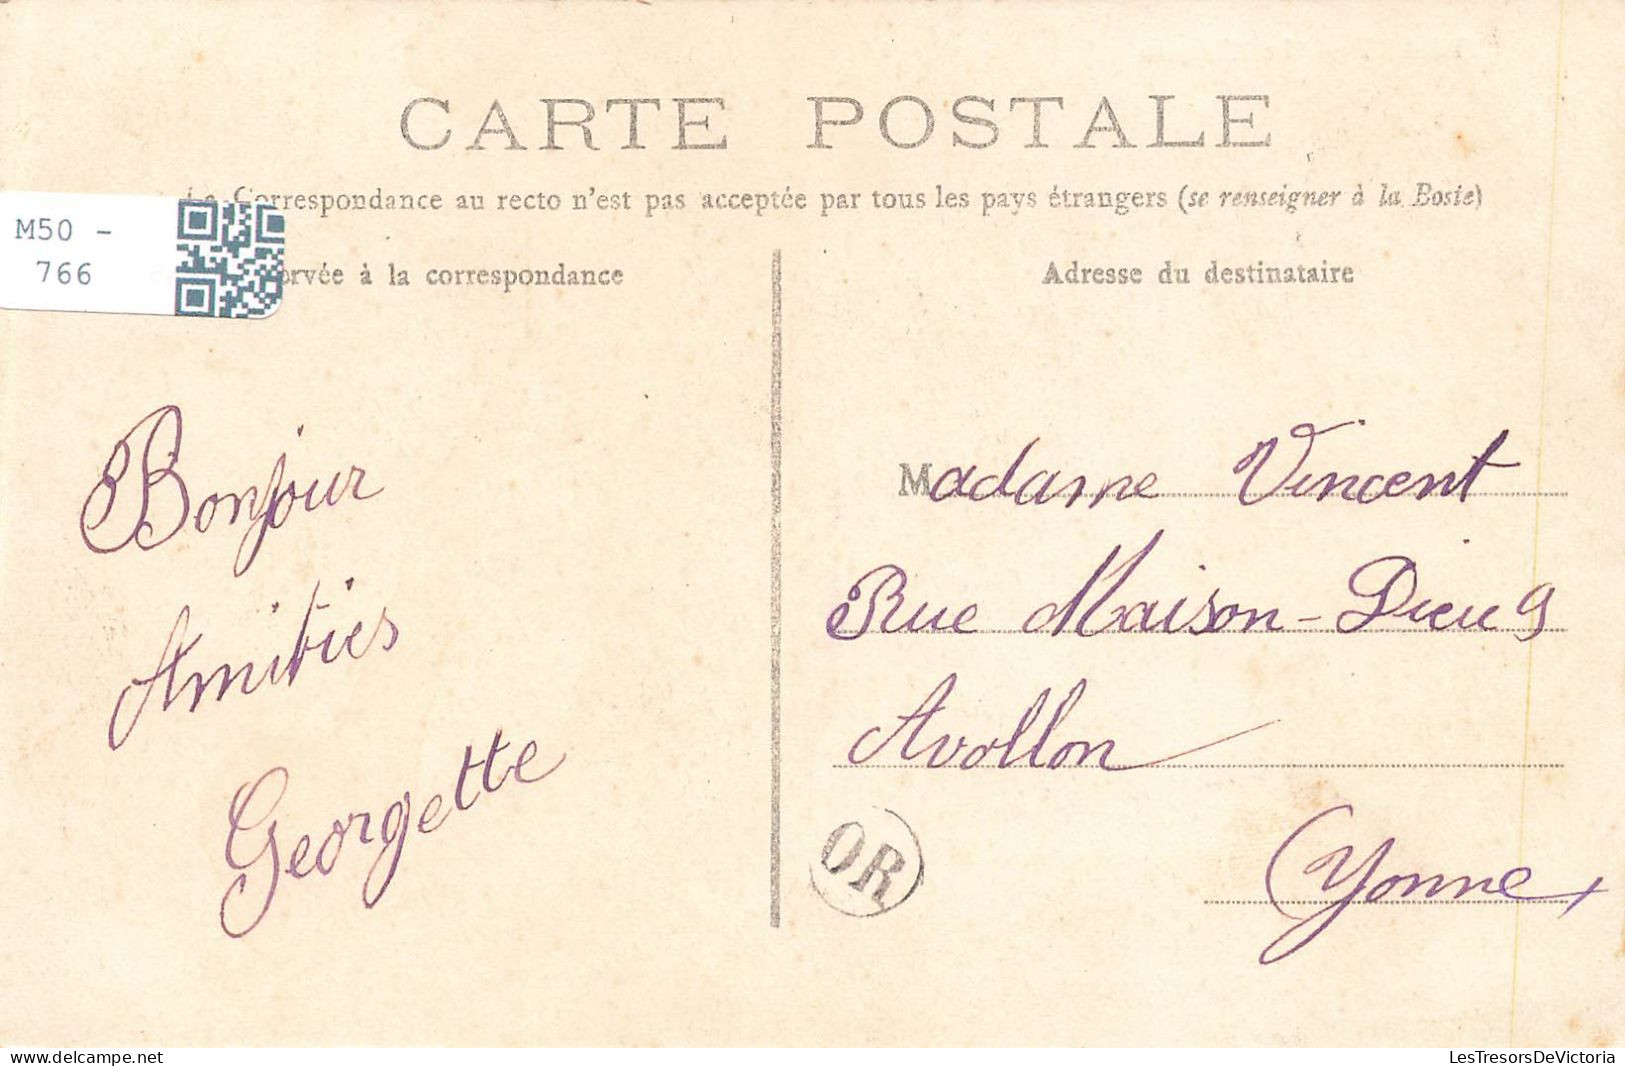 CARTE POSTALE
La Correspondance au recto n'est pas acceptée par tous les pays étrangers (se renseigner à la Poste)
M50 -
766
ervée à la correspondance
Adresse du destinataire
Bonjour
Amitiés
Georgette
Madame Vincent
Rue Maison-Dieu 9
Avallon
Yonne
OR
LesTresorsDeVictoria